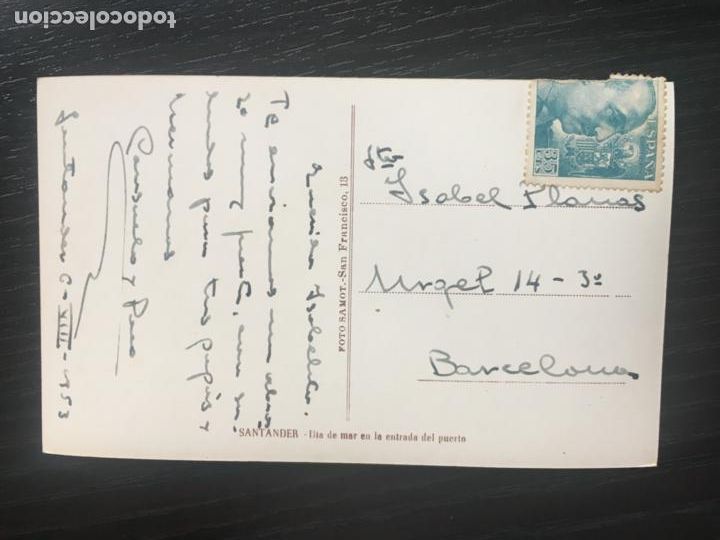 Querida Isabelita:
Te enviamos un abra-
zo muy fuerte, como su-
 para tus papás y
hermanos
Consuelo y Paco
Santander 6-VIII-1953
FOTO SAMOT.-San Francisco, 13
ESPAÑA
Isabel Planas
Urgel 14 - 3º
Barcelona
SANTANDER - Día de mar en la entrada del puerto
todocoleccion